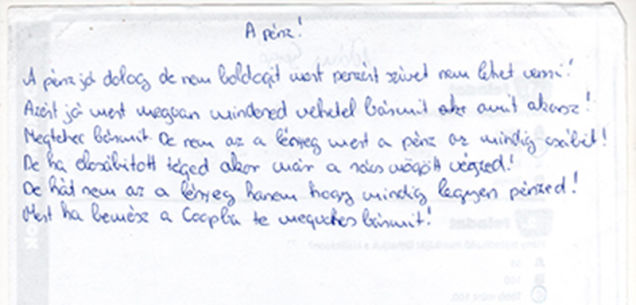 A pénz!
A pénz jó dolog de nem boldogit mert penzért szivet nem lehet venni!
Azért jó mert megvan mindened vehetel bármit akr amit akarsz!
Megtehec bármit. De nem az a lényeg mert a pénz az mindig csábit!
De ha elcsábitott téged akor már a rács mögött végzed!
De hát nem az a lényeg hanem hogy mindig legyen pénzed!
Mert ha bemész a Coopba te megvehes bármit!